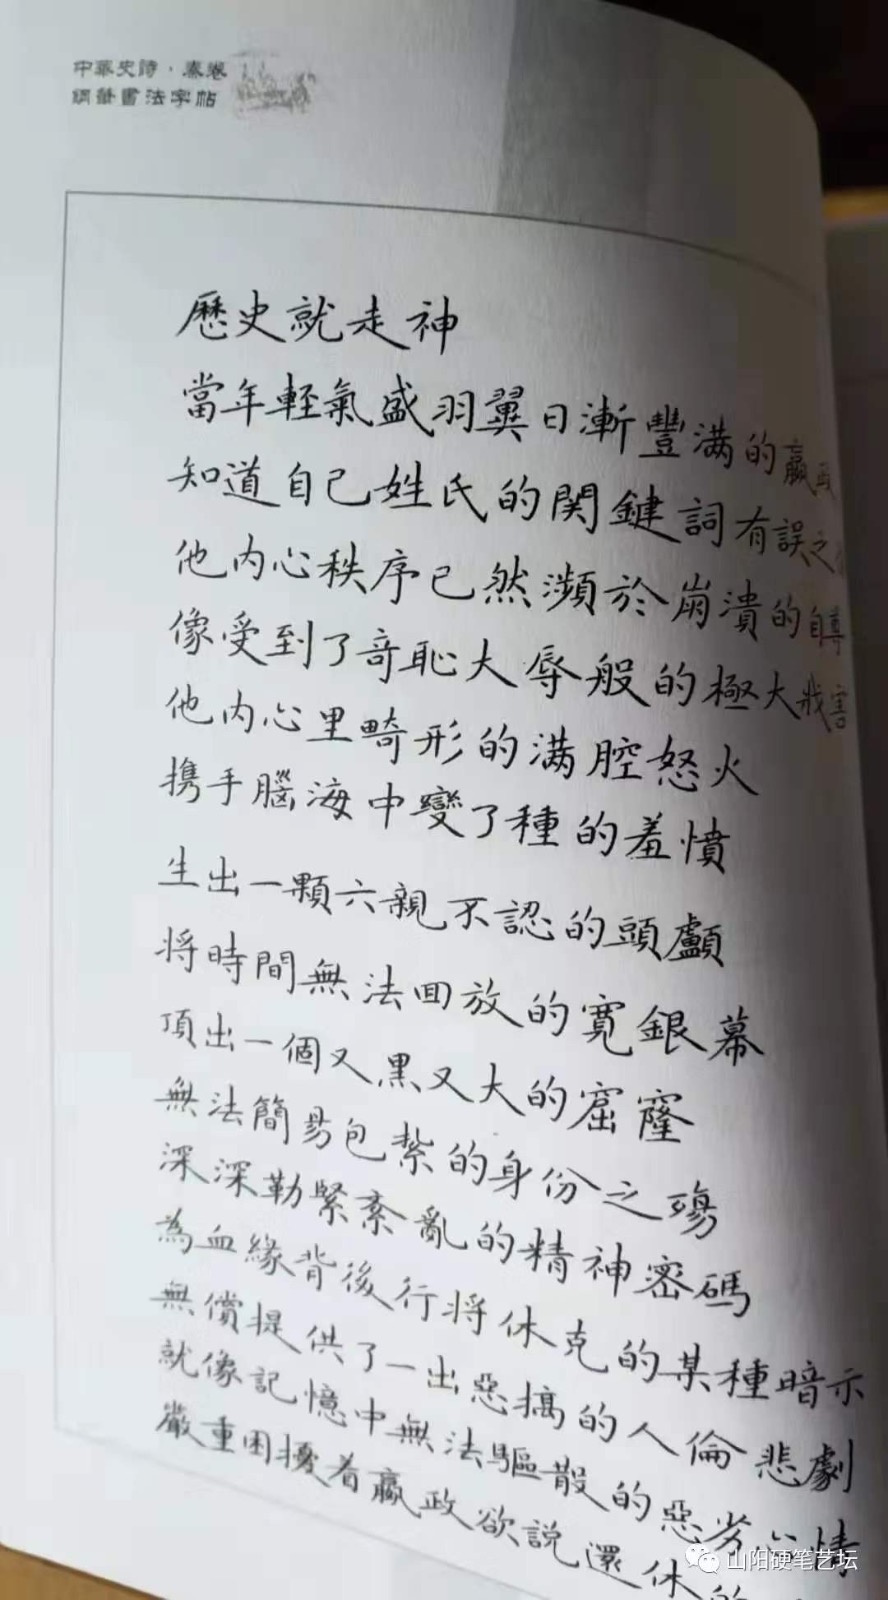 中華史詩·秦卷
鋼筆書法字帖
歷史就走神
當年輕氣盛羽翼日漸豐满的嬴政
知道自己姓氏的関鍵詞有誤之
他内心秩序已然瀕於崩潰的自尊
像受到了奇恥大辱般的極大戕害
他内心里畸形的满腔怒火
携手腦海中變了種的羞憤
生出一顆六親不認的頭顱
将時間無法回放的寬銀幕
頂出一個又黑又大的窟窿
無法簡易包紮的身份之殤
深深勒緊紊亂的精神密碼
為血緣背後行将休克的某種暗示
無償提供了一出惡搞的人倫悲劇
就像記憶中無法驅散的惡劣心情
嚴重困擾着嬴政欲説還休的
山阳硬笔艺坛